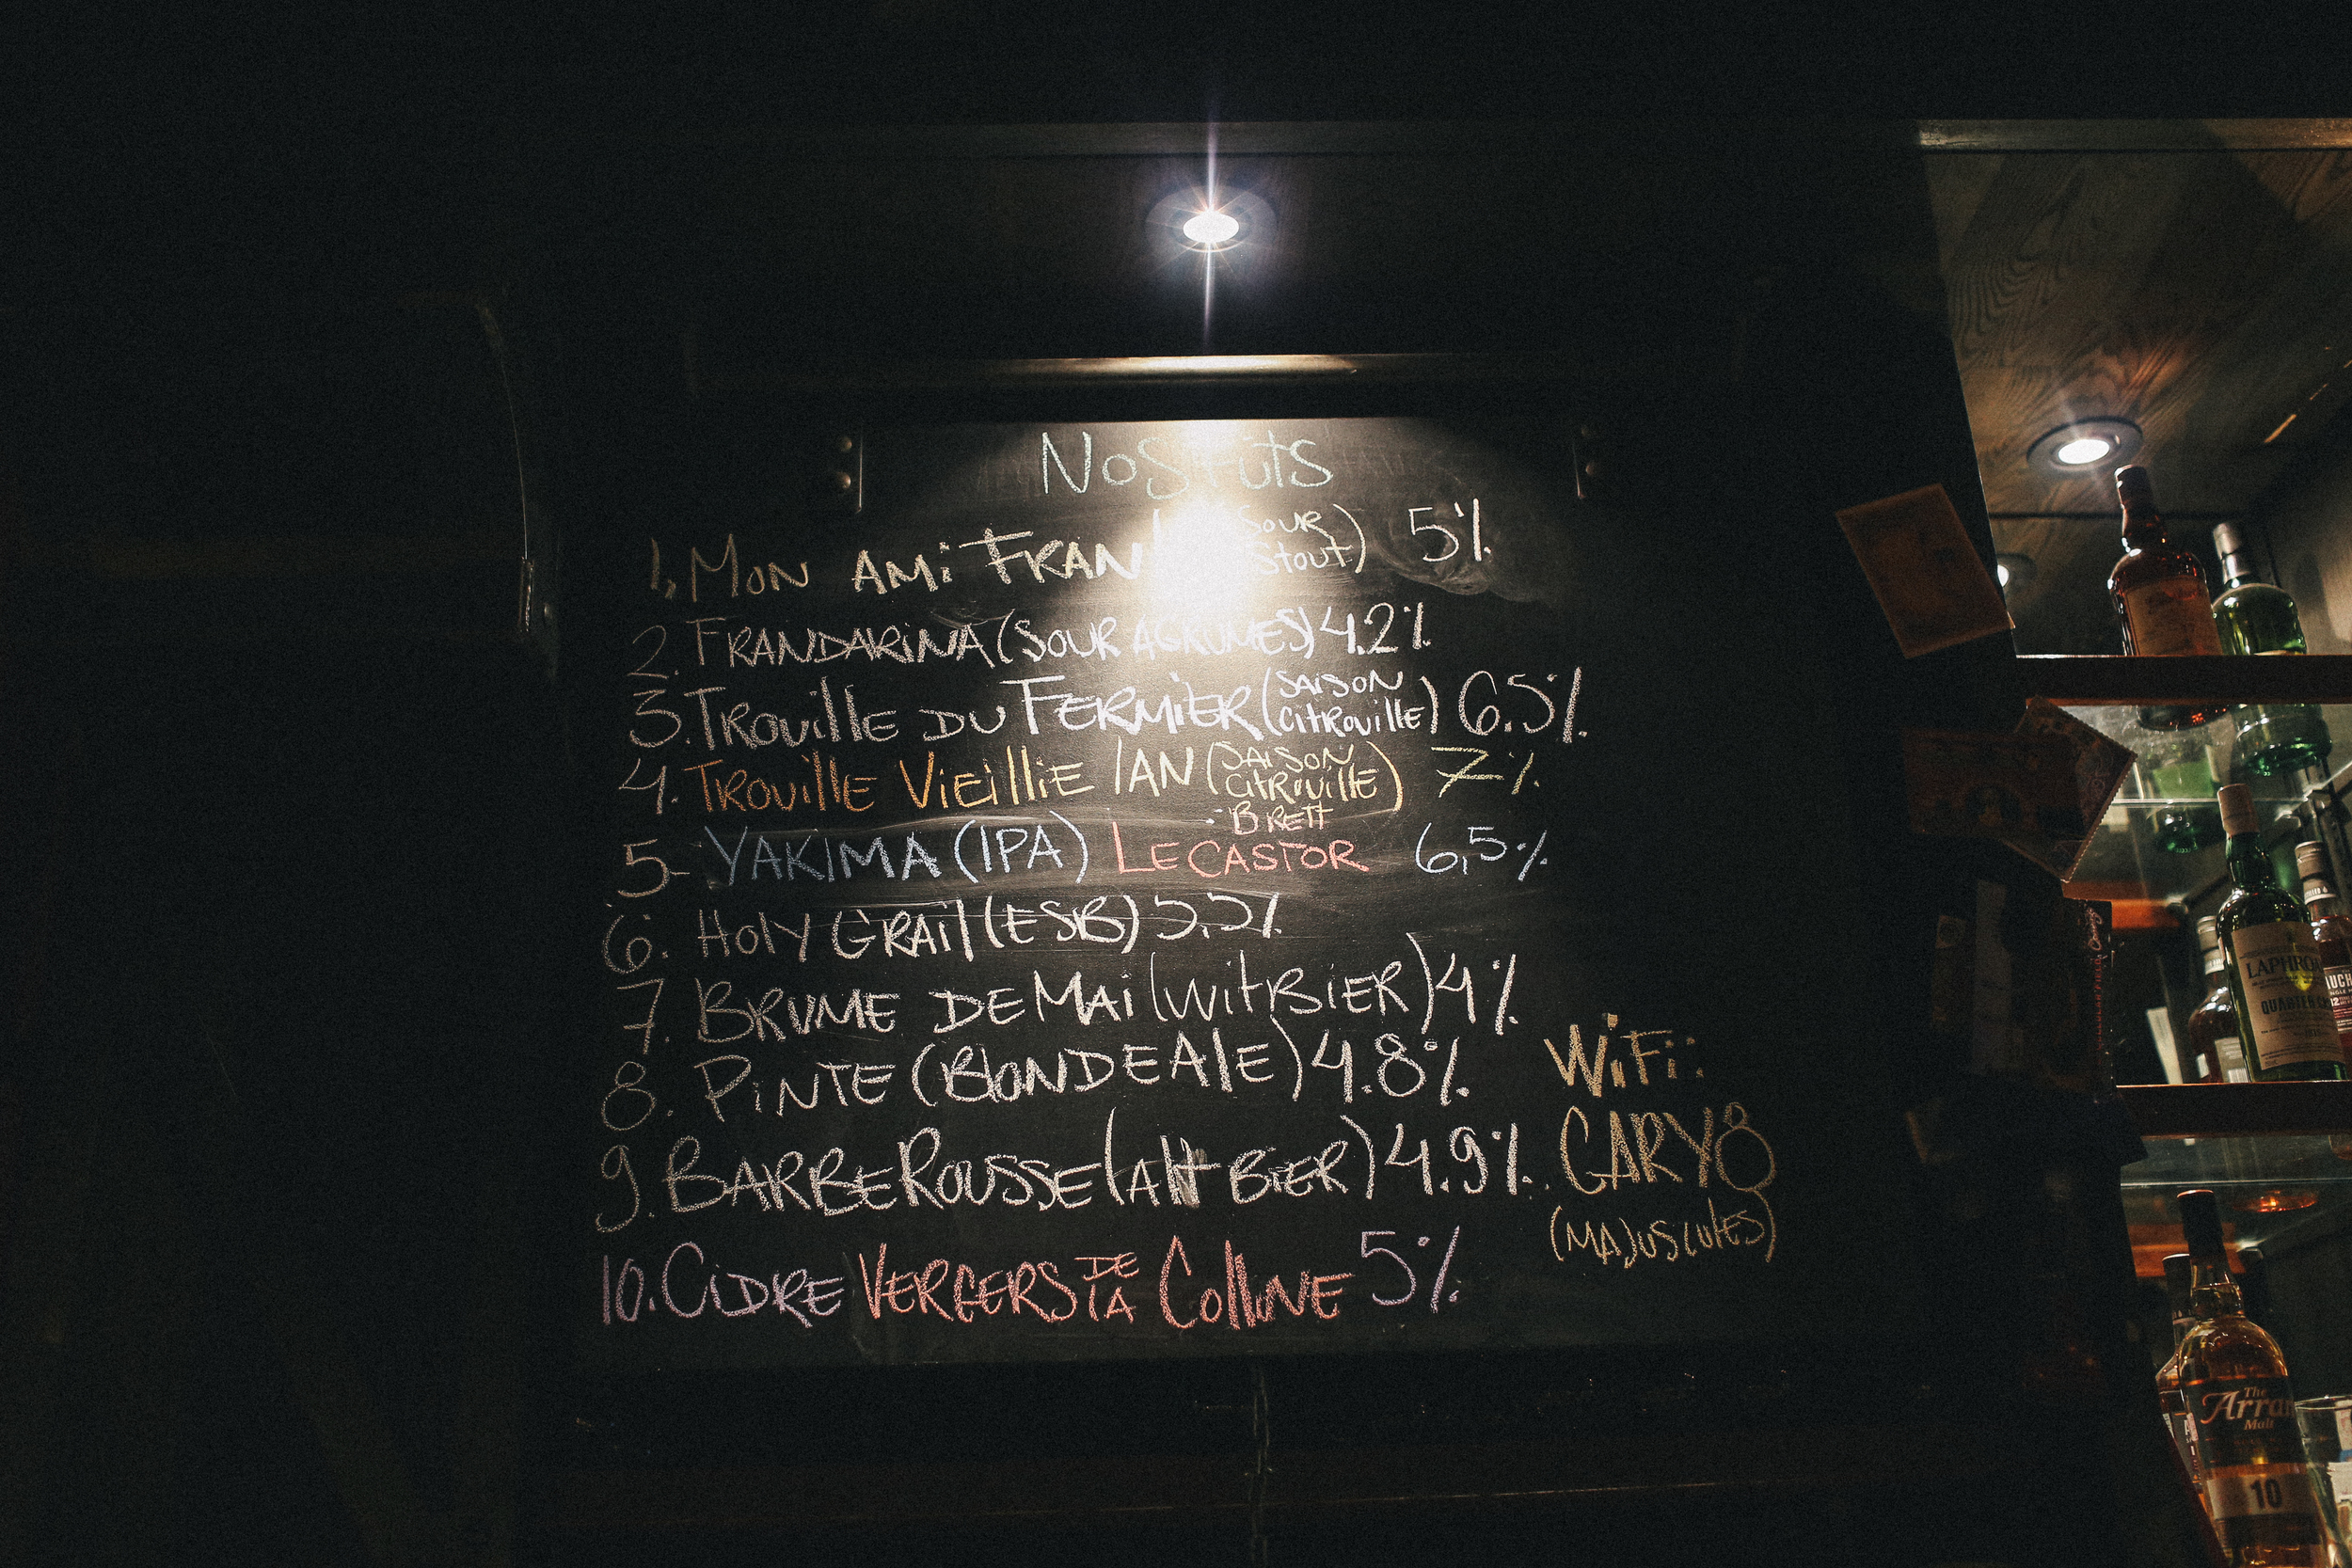 Nos fûts
1. Mon Ami Fran (Sour Stout) 5%
2. Frandarina (Sour Agrumes) 4.2%
3. Trouille du Fermier (Saison Citrouille) 6.5%
4. Trouille Vieillie 1 An (Saison Citrouille) 7%
Brett
5- Yakima (IPA) Le Castor 6,5%
6. Holy Grail (ESB) 5,5%
7. Brume de Mai (Witbier) 4%
8. Pinte (Blonde Ale) 4.8%
9. Barberousse (Alt Bier) 4.9%
10. Cidre Vergers de la Colline 5%
WiFi:
GARY8
(Majuscules)
LAPHRO
QUARTER C
The
Arran
Malt
10